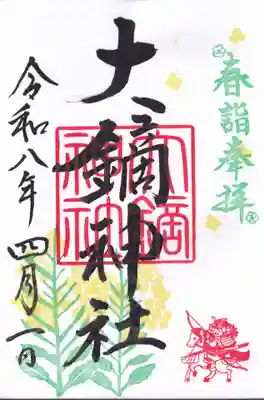 春詣奉拝
大鏑神社
大鏑
神社
令和八年 四月一日